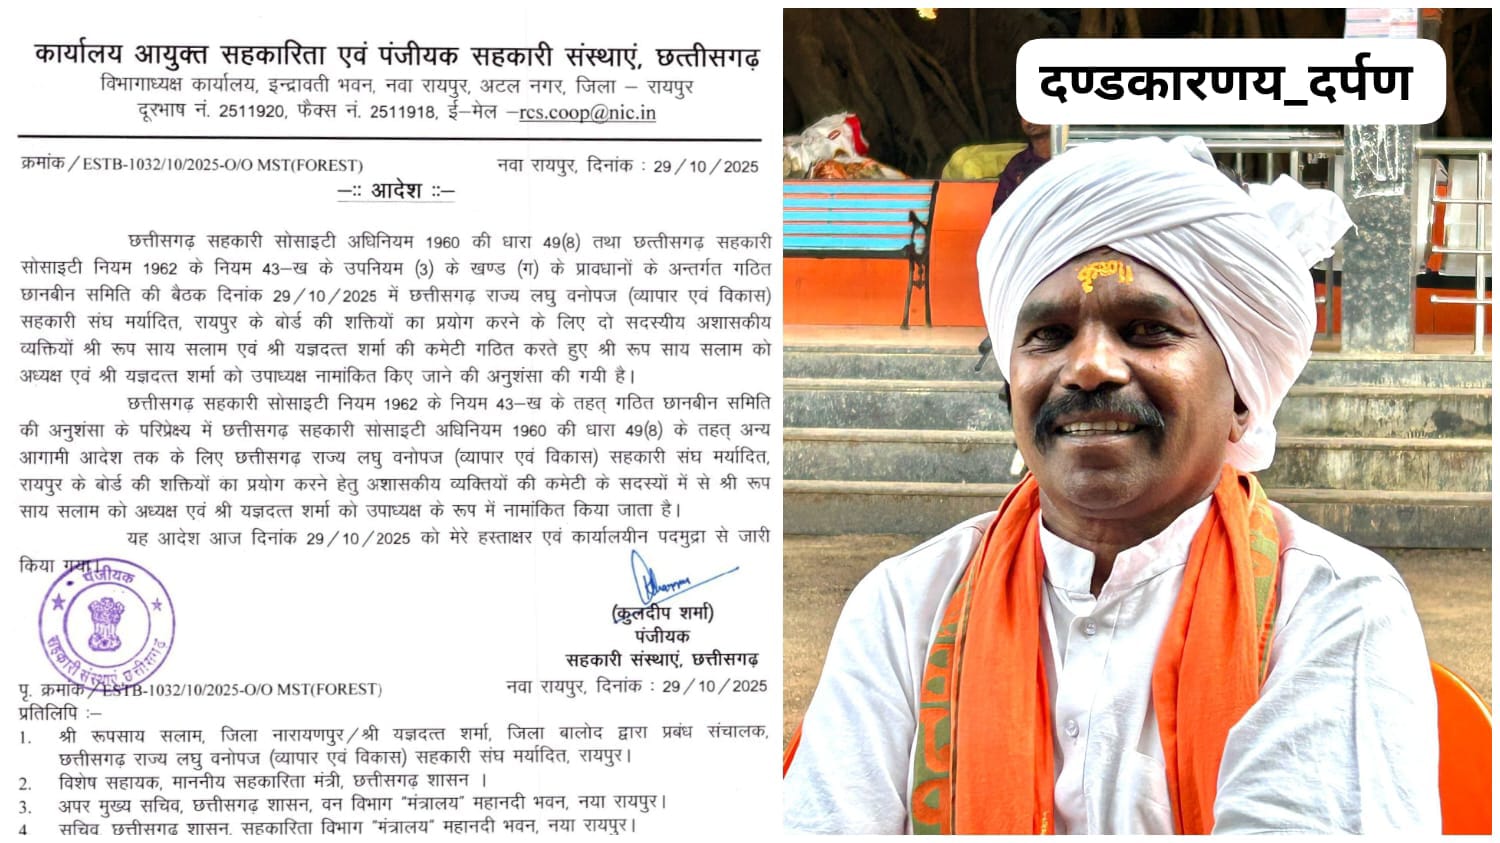 कार्यालय आयुक्त सहकारिता एवं पंजीयक सहकारी संस्थाएं, छत्तीसगढ़
विभागाध्यक्ष कार्यालय, इन्द्रावती भवन, नवा रायपुर, अटल नगर, जिला – रायपुर
दूरभाष नं. 2511920, फैक्स नं. 2511918, ई–मेल –rcs.coop@nic.in
क्रमांक/ESTB-1032/10/2025-O/O MST(FOREST) नवा रायपुर, दिनांक : 29/10/2025
–:: आदेश ::–
छत्तीसगढ़ सहकारी सोसाइटी अधिनियम 1960 की धारा 49(8) तथा छत्तीसगढ़ सहकारी
सोसाइटी नियम 1962 के नियम 43–ख के उपनियम (3) के खण्ड (ग) के प्रावधानों के अन्तर्गत गठित
छानबीन समिति की बैठक दिनांक 29/10/2025 में छत्तीसगढ़ राज्य लघु वनोपज (व्यापार एवं विकास)
सहकारी संघ मर्यादित, रायपुर के बोर्ड की शक्तियों का प्रयोग करने के लिए दो सदस्यीय अशासकीय
व्यक्तियों श्री रूप साय सलाम एवं श्री यज्ञदत्त शर्मा की कमेटी गठित करते हुए श्री रूप साय सलाम को
अध्यक्ष एवं श्री यज्ञदत्त शर्मा को उपाध्यक्ष नामांकित किए जाने की अनुशंसा की गयी है।
छत्तीसगढ़ सहकारी सोसाइटी नियम 1962 के नियम 43–ख के तहत् गठित छानबीन समिति
की अनुशंसा के परिप्रेक्ष्य में छत्तीसगढ़ सहकारी सोसाइटी अधिनियम 1960 की धारा 49(8) के तहत् अन्य
आगामी आदेश तक के लिए छत्तीसगढ़ राज्य लघु वनोपज (व्यापार एवं विकास) सहकारी संघ मर्यादित,
रायपुर के बोर्ड की शक्तियों का प्रयोग करने हेतु अशासकीय व्यक्तियों की कमेटी के सदस्यों में से श्री रूप
साय सलाम को अध्यक्ष एवं श्री यज्ञदत्त शर्मा को उपाध्यक्ष के रूप में नामांकित किया जाता है।
यह आदेश आज दिनांक 29/10/2025 को मेरे हस्ताक्षर एवं कार्यालयीन पदमुद्रा से जारी
किया गया।
पंजीयक
सहकारी संस्थाएं, छत्तीसगढ़
(कुलदीप शर्मा)
पंजीयक
सहकारी संस्थाएं, छत्तीसगढ़
पृ. क्रमांक/ESTB-1032/10/2025-O/O MST(FOREST) नवा रायपुर, दिनांक : 29/10/2025
प्रतिलिपि :–
1. श्री रूपसाय सलाम, जिला नारायणपुर/श्री यज्ञदत्त शर्मा, जिला बालोद द्वारा प्रबंध संचालक,
छत्तीसगढ़ राज्य लघु वनोपज (व्यापार एवं विकास) सहकारी संघ मर्यादित, रायपुर।
2. विशेष सहायक, माननीय सहकारिता मंत्री, छत्तीसगढ़ शासन ।
3. अपर मुख्य सचिव, छत्तीसगढ़ शासन, वन विभाग "मंत्रालय" महानदी भवन, नया रायपुर।
4. सचिव, छत्तीसगढ़ शासन, सहकारिता विभाग "मंत्रालय" महानदी भवन, नया रायपुर।
दण्डकारणय_दर्पण